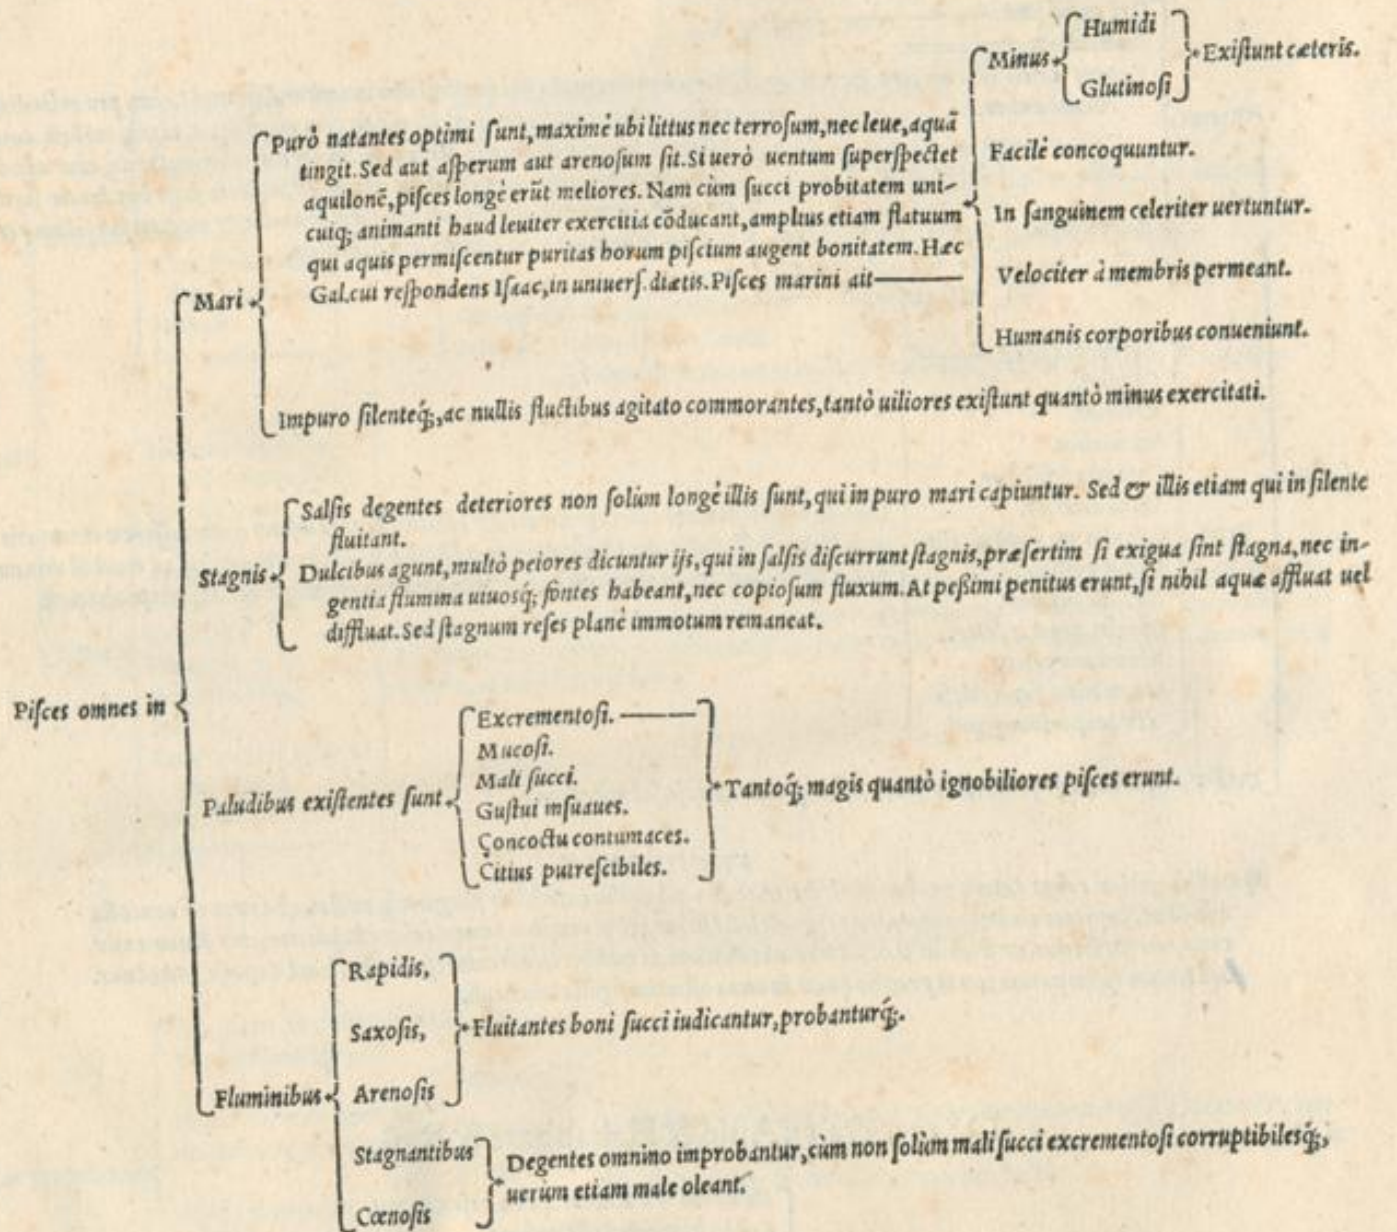 Piſces omnes in
Mari
Puro natantes optimi ſunt, maximè ubi littus nec terroſum, nec leue, aquā
tingit. Sed aut aſperum aut arenoſum ſit. Si uerò uentum ſuperſpectet
aquilonē, piſces longè erūt meliores. Nam cùm ſucci probitatem uni-
cuiq; animanti haud leuiter exercitia cōducant, amplius etiam flatuum
qui aquis permiſcentur puritas horum piſcium augent bonitatem. Hæc
Gal. cui reſpondens Iſaac, in uniuerſ. diætis. Piſces marini ait
Minus
Humidi
Glutinoſi
Exiſtunt cæteris.
Facilè concoquuntur.
In ſanguinem celeriter uertuntur.
Velociter à membris permeant.
Humanis corporibus conueniunt.
Impuro ſilenteq́;, ac nullis fluctibus agitato commorantes, tantò uiliores exiſtunt quantò minus exercitati.
Stagnis
Salſis degentes deteriores non ſolùm longè illis ſunt, qui in puro mari capiuntur. Sed & illis etiam qui in ſilente
fluitant.
Dulcibus agunt, multò peiores dicuntur ijs, qui in ſalſis diſcurrunt ſtagnis, præſertim ſi exigua ſint ſtagna, nec in-
gentia flumina uiuosq́; fontes habeant, nec copioſum fluxum. At peßimi penitus erunt, ſi nihil aquæ affluat uel
diffluat. Sed ſtagnum reſes planè immotum remaneat.
Paludibus exiſtentes ſunt
Excrementoſi.
Mucoſi.
Mali ſucci.
Guſtui inſuaues.
Concoctu contumaces.
Citius putreſcibiles.
Tantoq́; magis quantò ignobiliores piſces erunt.
Fluminibus
Rapidis,
Saxoſis,
Arenoſis
Fluitantes boni ſucci iudicantur, probanturq́;.
Stagnantibus
Cœnoſis
Degentes omnino improbantur, cùm non ſolùm mali ſucci excrementoſi corruptibilesq́;,
uerum etiam male oleant.